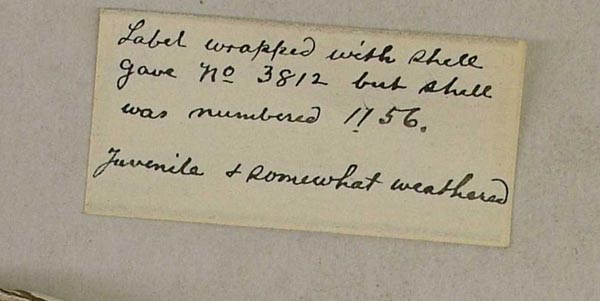 Label wrapped with shell
gave No 3812 but shell
was numbered 1156.
Juvenile & somewhat weathered